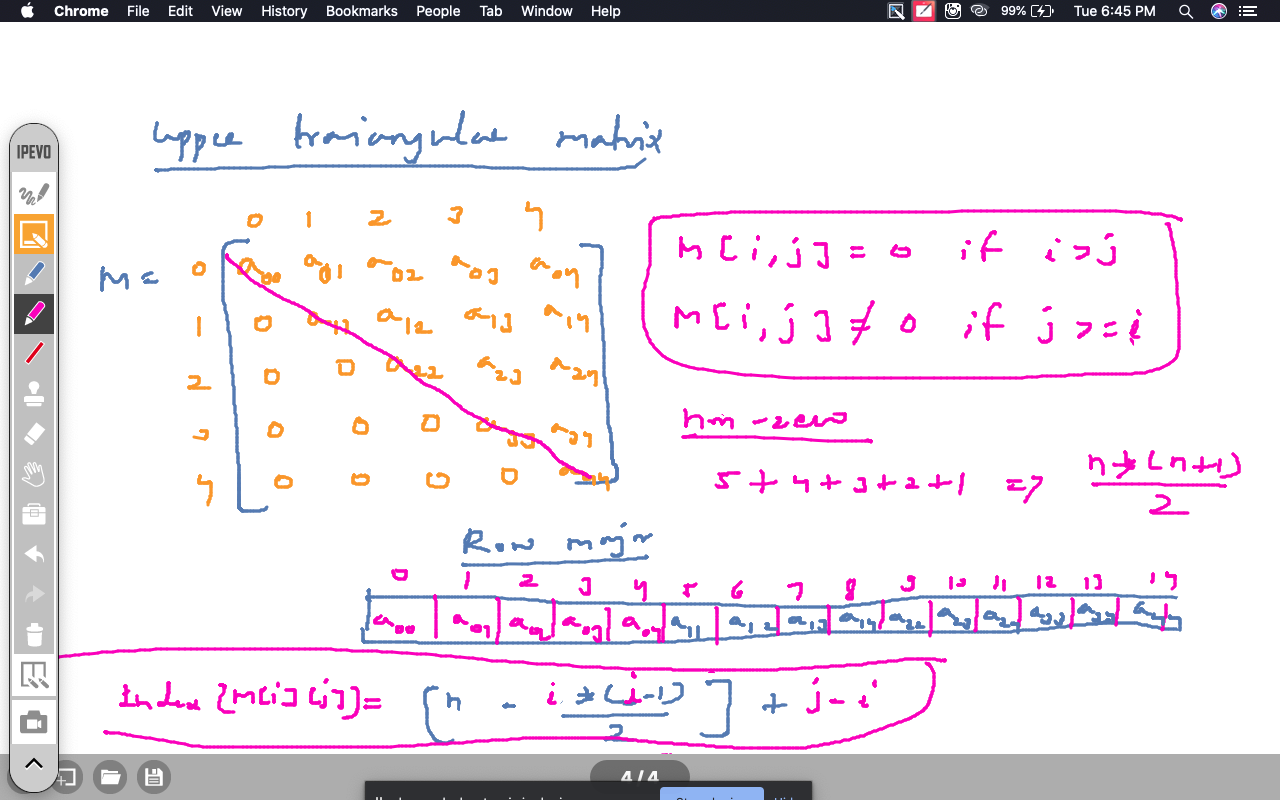 Chrome File Edit View History Bookmarks People Tab Window Help 99% Tue 6:45 PM
IPEVO
upper traiangular matrix
0 1 2 3 4
M =
0 a00 a01 a02 a03 a04
1 0 a11 a12 a13 a14
2 0 0 a22 a23 a24
3 0 0 0 a33 a34
4 0 0 0 0 a44
M[i,j] = 0 if i>j
M[i,j] ≠ 0 if j>=i
non-zero
5+4+3+2+1 => n*(n+1)/2
Row major
0 1 2 3 4 5 6 7 8 9 10 11 12 13 14
a00 a01 a02 a03 a04 a11 a12 a13 a14 a22 a23 a24 a33 a34 a44
Index [M[i][j]] = [n - i*(i-1)/2] + j-i
4 / 4